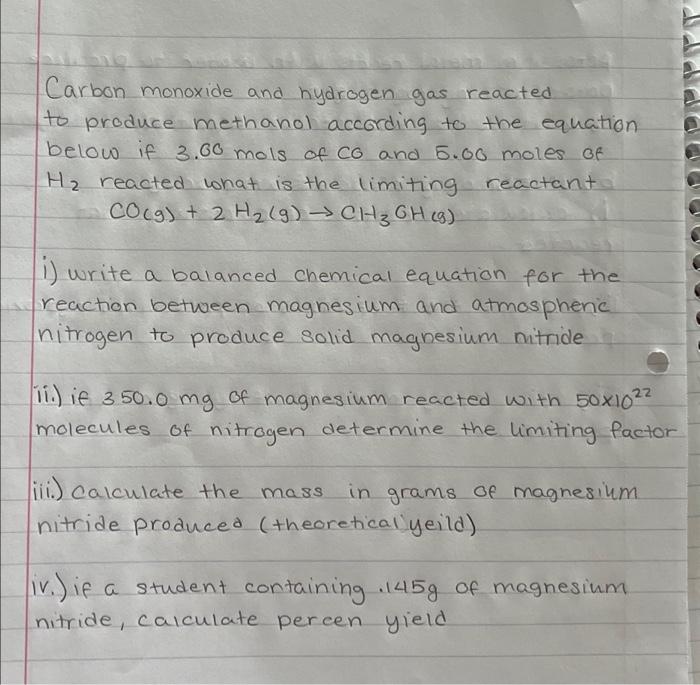 Carbon monoxide and hydrogen gas reacted
to produce methanol according to the equation
below if 3.00 mols of CO and 5.00 moles of
H₂ reacted what is the limiting reactant
CO(g) + 2 H₂(g) → CH₃OH(g)
i) write a balanced chemical equation for the
reaction between magnesium and atmospheric
nitrogen to produce solid magnesium nitride
ii.) if 350.0 mg of magnesium reacted with 50x10²²
molecules of nitrogen determine the limiting factor
iii.) calculate the mass in grams of magnesium
nitride produced (theoretical yeild)
iv.) if a student containing .145g of magnesium
nitride, calculate percen yield